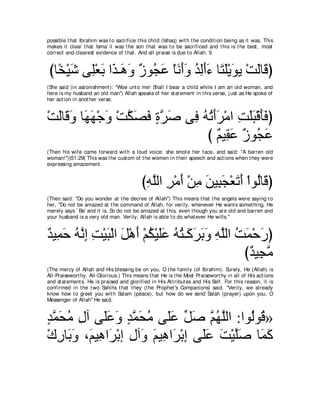 possible that Ibrahim was to sacrifice this child (Ishaq) with the condition being as it was. This
makes it clear that Isma`il was the son that was to be sacrificed and this is the best, most
correct and clearest evidence of that. And all praise is due to Allah. 9
(قَالَتْ يوَيْلَتَا ءَأَلِدُ وَأَنَاْ عَجُوزٌ وَهَـذَا بَعْلِى شَيْخًا)
(She said (in astonishment): "Woe unto me! Shall I bear a child while I am an old woman, and
here is my husband an old man") Allah speaks of her statement in this verse, just as He spoke of
her action in another verse.
(فَأَقْبَلَتِ امْرَأَتُهُ فِى صَرَّةٍ فَصَكَّتْ وَجْهَهَا وَقَالَتْ
عَجُوزٌ عَقِيمٌ )
(Then his wife came forward with a loud voice: she smote her face, and said: "A barren old
woman!")(51:29( This was the custom of the women in their speech and actions when they were
expressing amazement.
(قَالُواْ أَتَعْجَبِينَ مِنْ أَمْرِ اللَّهِ)
(Then said: "Do you wonder at the decree of Allah") This means that the angels were saying to
her, "Do not be amazed at the command of Allah, for verily, whenever He wants something, He
merely says `Be' and it is. So do not be amazed at this, even though you are old and barren and
your husband is a very old man. Verily, Allah is able to do whatever He wills."
(رَحْمَتُ اللَّهِ وَبَرَكَـتُهُ عَلَيْكُمْ أَهْلَ الْبَيْتِ إِنَّهُ حَمِيدٌ
مَّجِيدٌ)
(The mercy of Allah and His blessing be on you, O the family (of Ibrahim). Surely, He (Allah) is
All-Praiseworthy, All-Glorious.) This means that He is the Most Praiseworthy in all of His actions
and statements. He is praised and glorified in His Attributes and His Self. For this reason, it is
confirmed in the two Sahihs that they (the Prophet's Companions) said, "Verily, we already
know how to greet you with Salam (peace), but how do we send Salah (prayer) upon you, O
Messenger of Allah" He said,
«قُولُوا: اللَّهُمَّ صَلِّ عَلَى مُحَمَّدٍ وَعَلَى آلِ مُحَمَّدٍ
كَمَا صَلَّيْتَ عَلَى إِبْرَاهِيمَ وَآلِ إِبْرَاهِيمَ، وَبَارِكْ